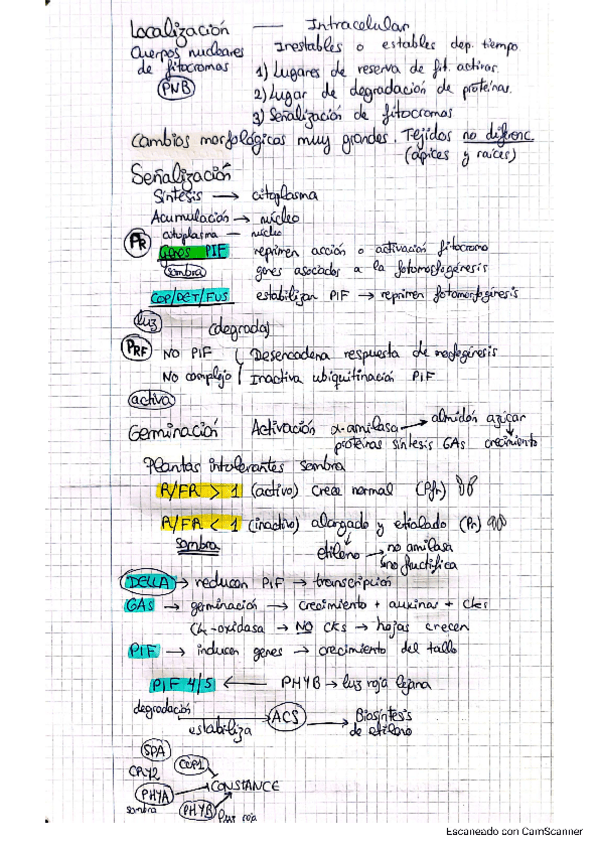 Localización — Intracelular
Cuerpos nucleares Inestables o estables dep. tiempo
de fitocromas 1) Lugares de reserva de fit. activas.
PNB 2) Lugar de degradación de proteínas.
3) Señalización de fitocromas
Cambios morfológicos muy grandes. Tejidos no diferenc
(ápices y raíces)
Señalización
Síntesis → citoplasma
Acumulación → núcleo
citoplasma — núcleo
PR Genes PIF reprimen acción o activación fitocromo
sombra genes asociados a la fotomorfogénesis
COP/DET/FUS estabilizan PIF → reprimen fotomorfogénesis
luz (degrada)
PRF NO PIF Desencadena respuesta de morfogénesis
No complejo Inactiva ubiquitinación PIF
activa
Germinación Activación α-amilasa → almidón azúcar
proteínas síntesis GAs crecimiento
Plantas intolerantes sombra
R/FR > 1 (activo) crece normal (Pfr)
R/FR < 1 (inactivo) alargado y etiolado (Pr)
sombra etileno → no amilasa
no fructifica
DELLA → reducen PIF → transcripción
GAs → germinación → crecimiento + auxinas + cks
Ck-oxidasa → NO CKs → hojas crecen
PIF → inducen genes → crecimiento del tallo
PIF 4/5 ← PHYB → luz roja lejana
degradación
estabiliza → ACS → Biosíntesis
de etileno
SPA
COP1
CRY2
CONSTANCE
PHYA
sombra PHYB luz roja
Escaneado con CamScanner